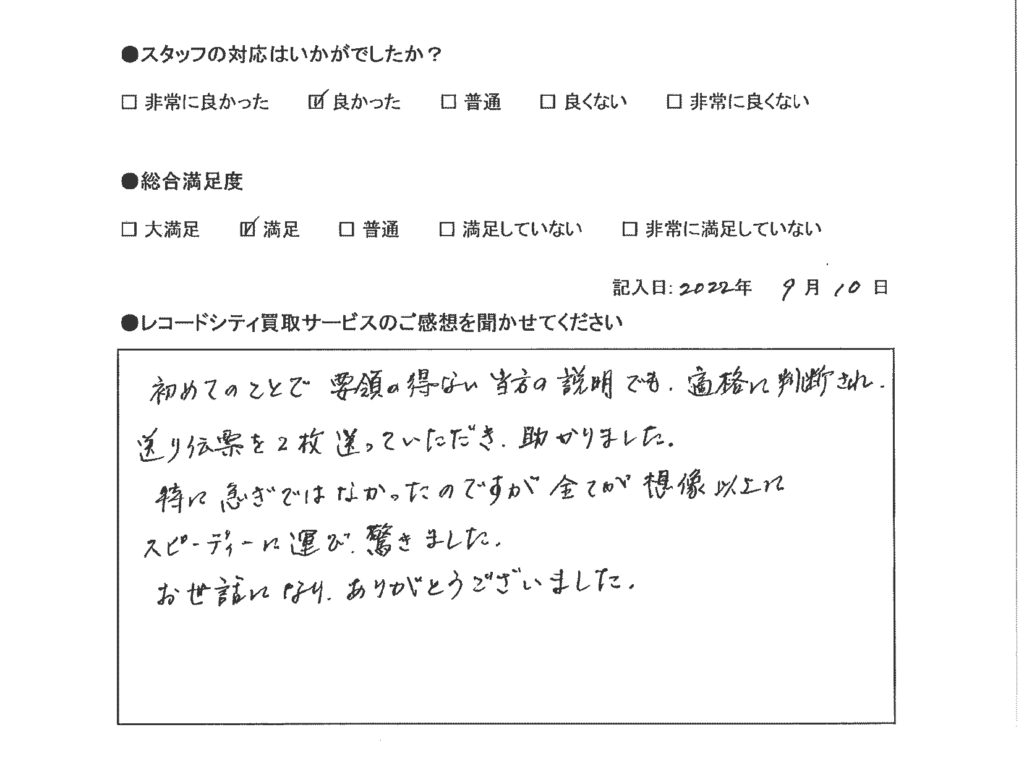 ●スタッフの対応はいかがでしたか？
□ 非常に良かった ☑ 良かった □ 普通 □ 良くない □ 非常に良くない
●総合満足度
□ 大満足 ☑ 満足 □ 普通 □ 満足していない □ 非常に満足していない
記入日:2022年 9月10日
●レコードシティ買取サービスのご感想を聞かせてください
初めてのことで 要領の得ない当方の説明でも、適格に判断され、
送り伝票を2枚送っていただき、助かりました。
特に急ぎではなかったのですが全てが想像以上に
スピーディーに運び、驚きました。
お世話になり、ありがとうございました。